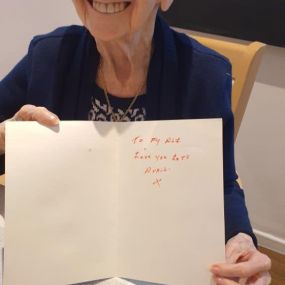 To My
Love you Lots
Avril
X